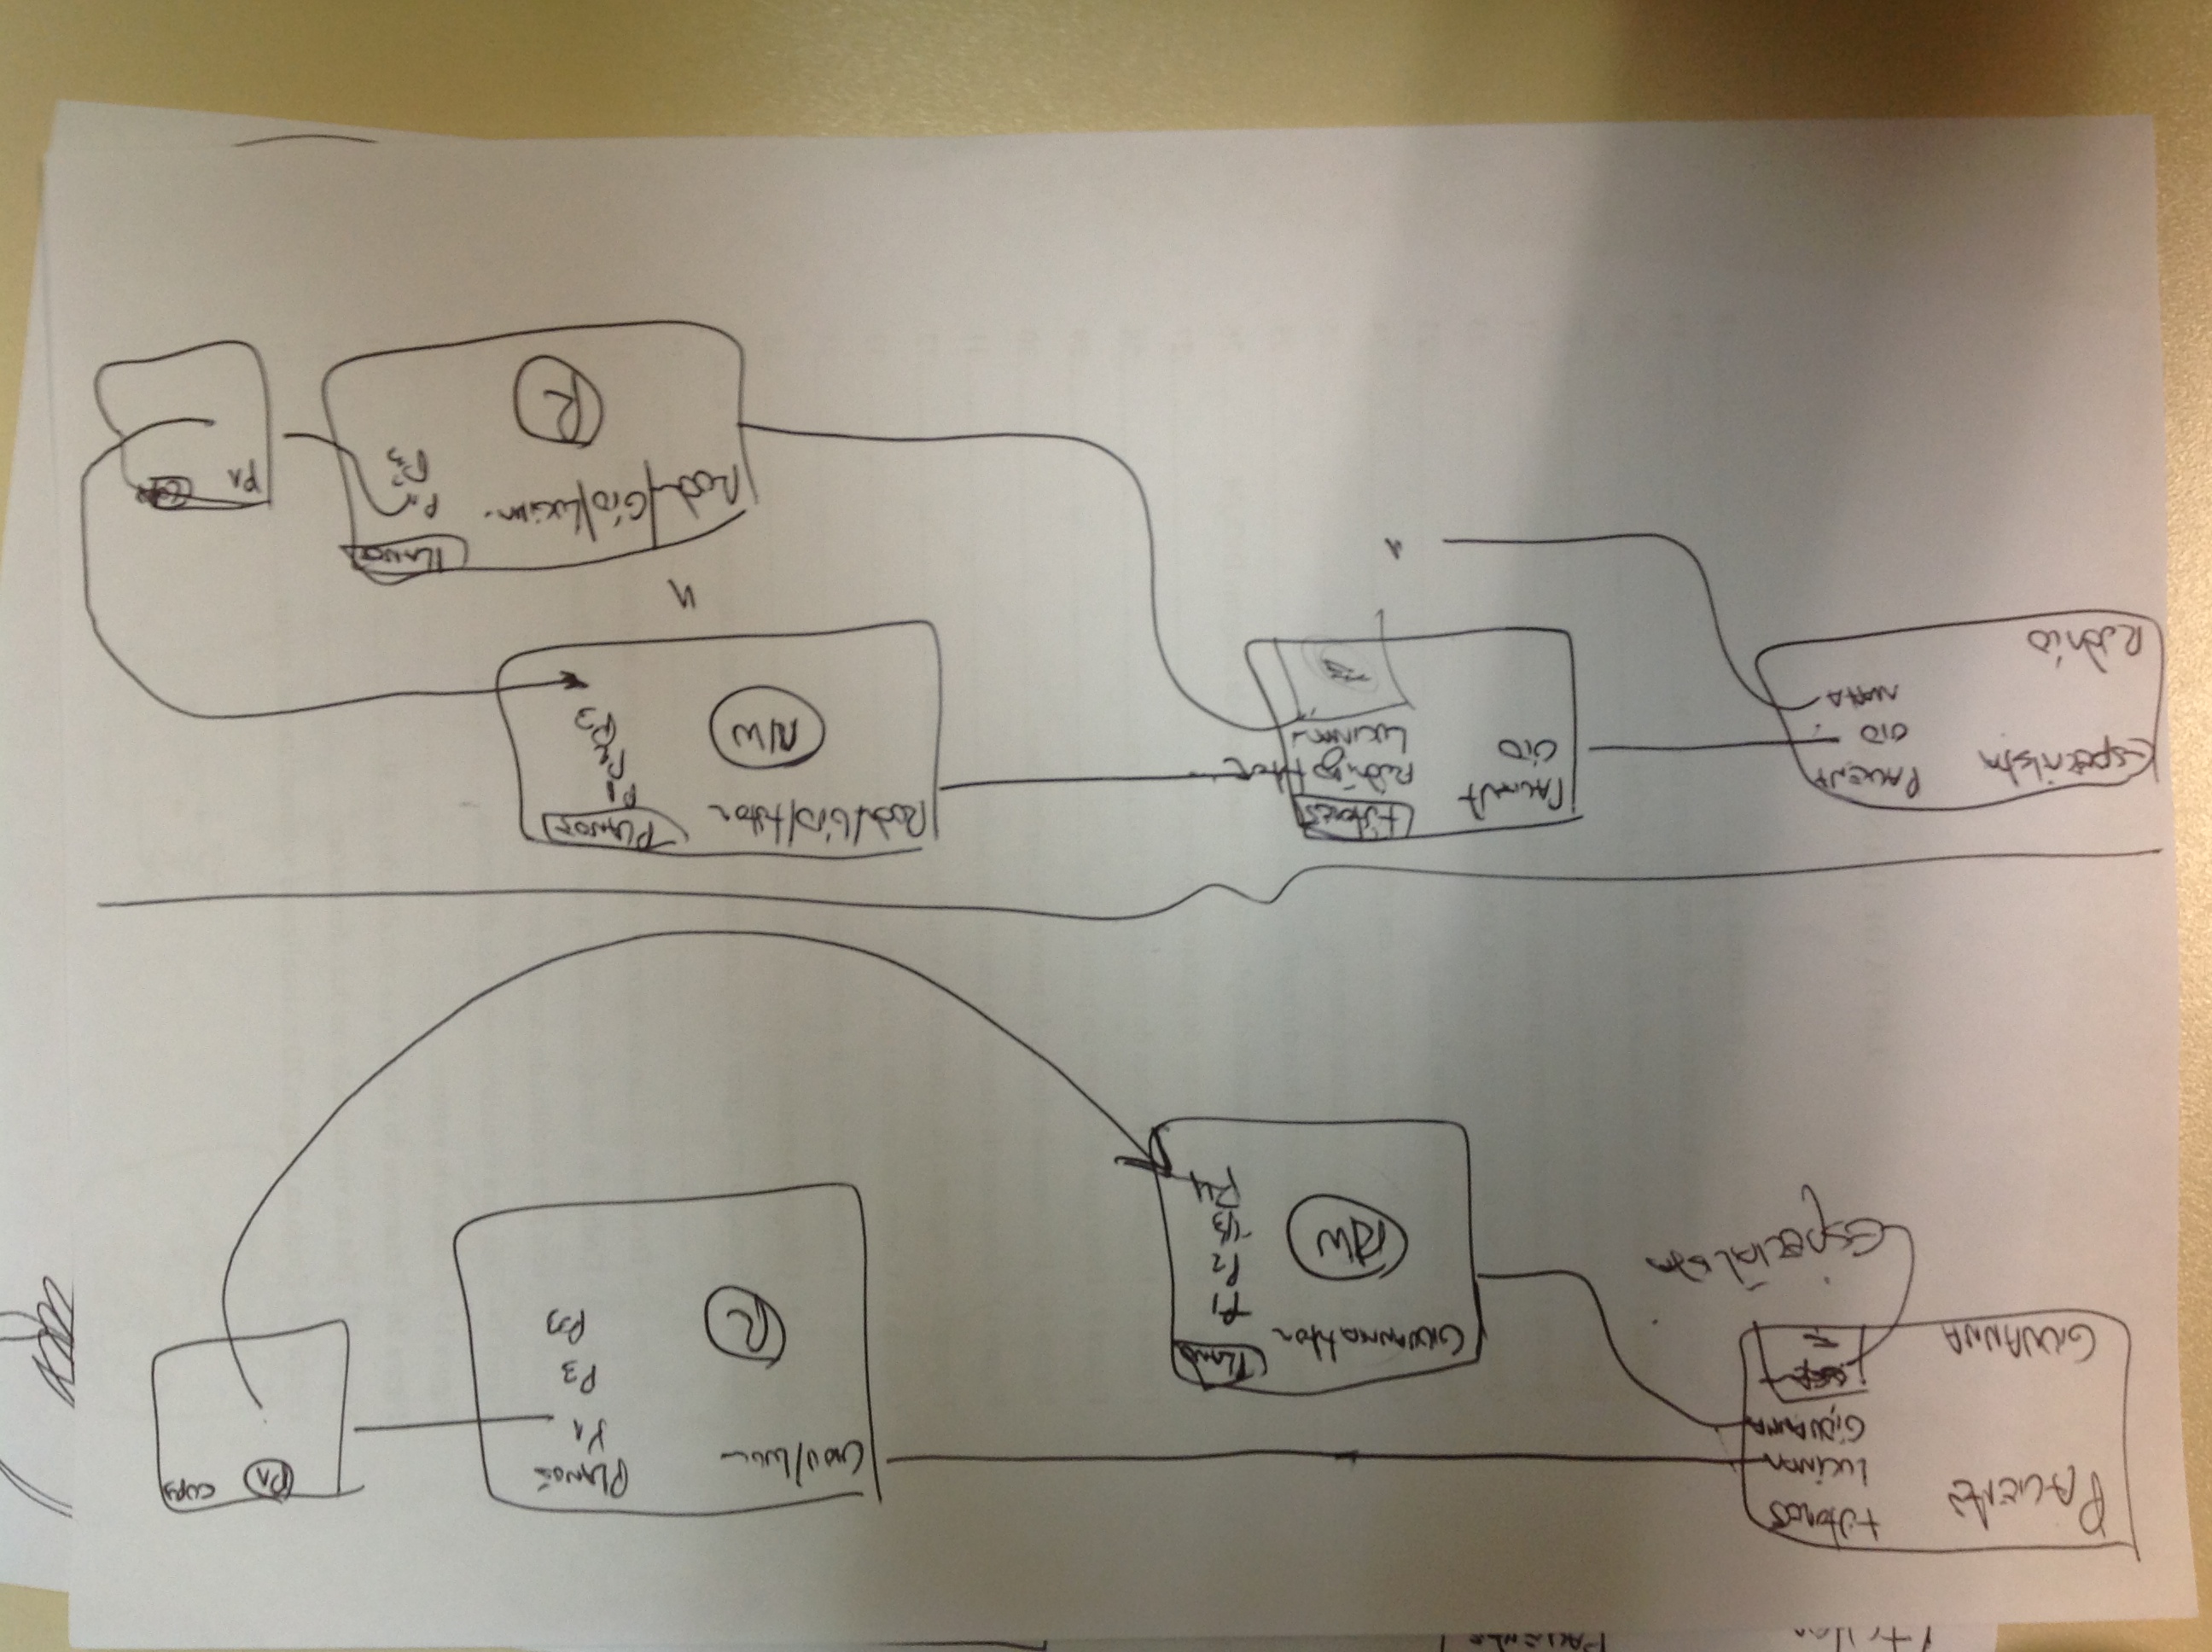 PACIENTE
PACIENTE
tutores
LUCIMAR
GIOVANNA
GIOVANNA
Especialista
GIOVANNA tutor
PLANO
P1
P2
P3
P4
R/W
PLANOS
P1
P3
R
P1
COPY
Especialista
PACIENT
GIO
MARIA
PACIENT
GIO
tutores
Rodrigo tutor
LUCIMAR
Rodr/Gio/tutor
PLANOS
P1
P2
P3
R/W
Rodr/Gio/Lucimar
PLANOS
P1
P3
R
P1